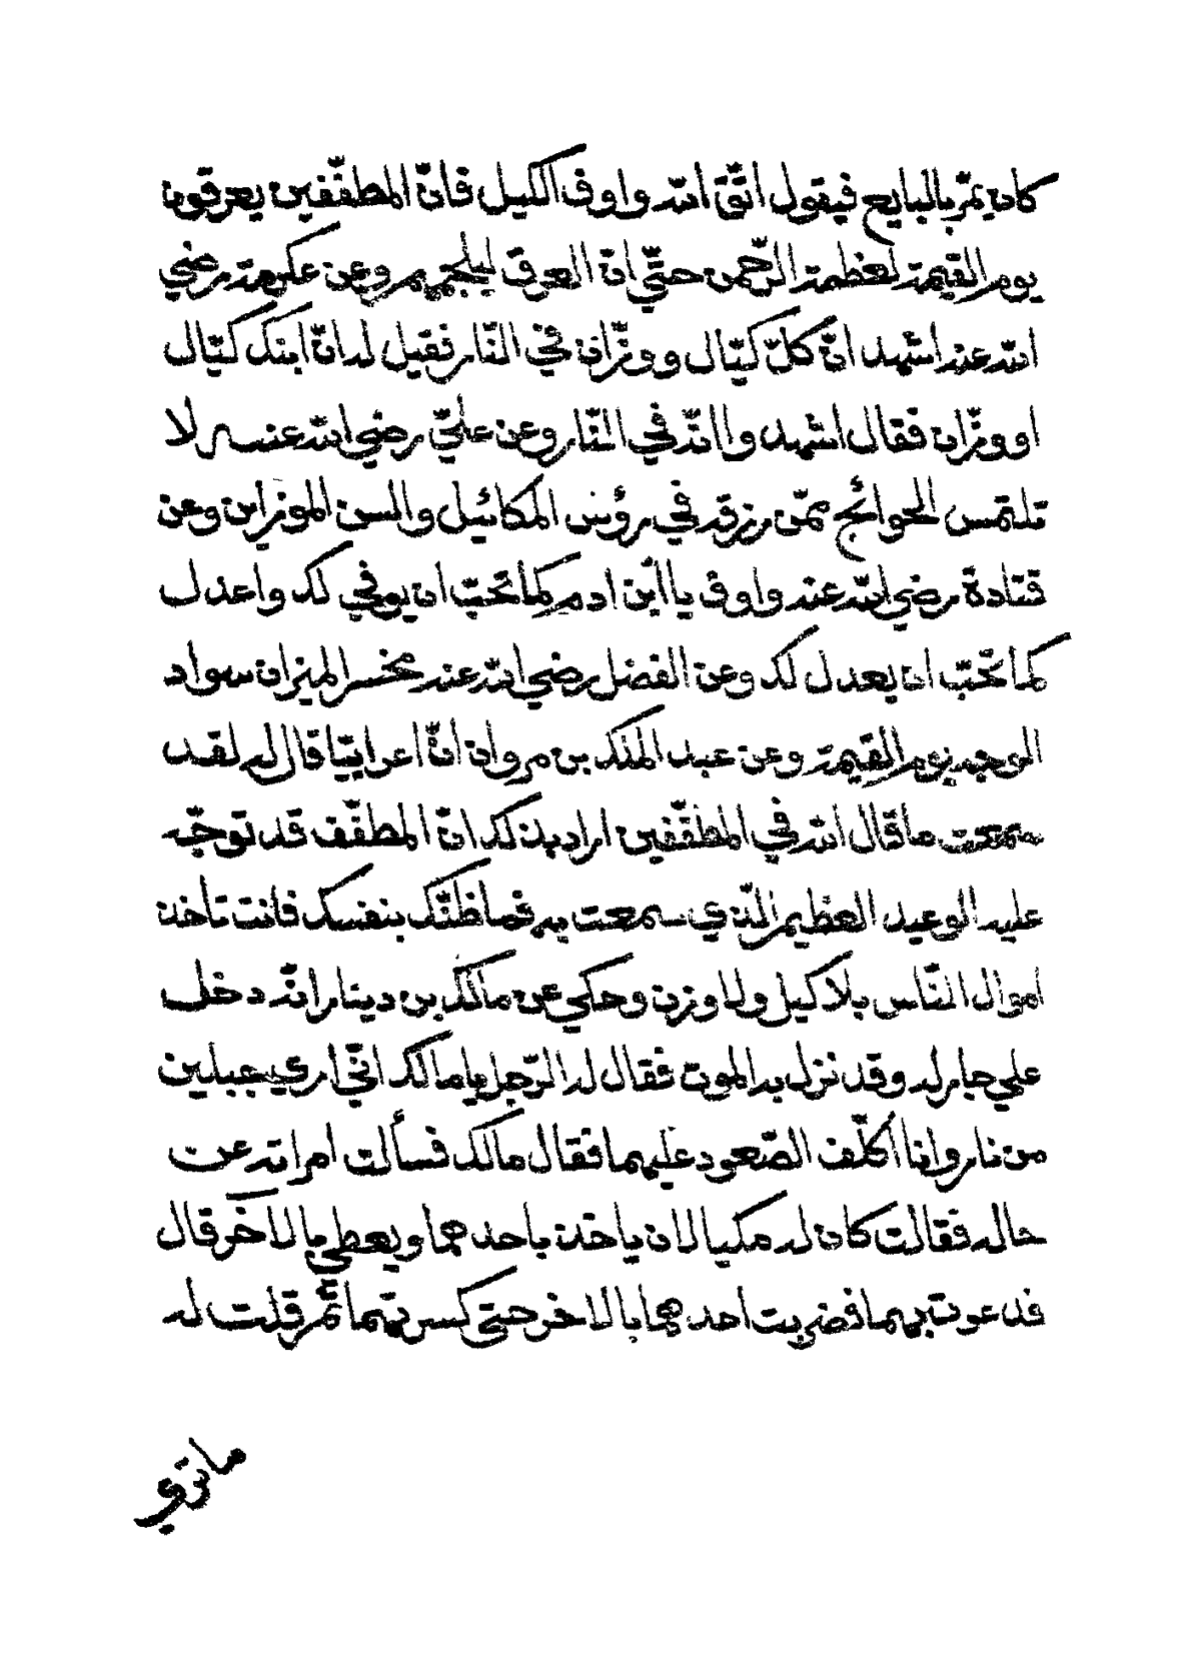 كان يمرّ بالبايع فيقول اتّق الله واوف الكيل فانّ المطفّفين يعرقون
يوم القيمة لعظمة الرّحمن حتّي ان العرق ليلجمهم وعن عكرمة رضي
الله عنه اشهد انّ كلّ كيّال ووزّان في النّار فقيل له انّ ابنك كيّال
او وزّان فقال اشهد وا انّه في النّار وعن عليّ رضي الله عنه لا
تلتمس الحوائج ممّن رزقه في رؤس المكائيل والسن الموزاين وعن
قتادة رضي الله عنه واوف يا ابن ادم كما تحبّ ان يوفي لك واعدل
كما تحبّ ان يعدل لك وعن الفضل رضي الله عنه مخسر الميزان سواد
الوجه يوم القيمة وعن عبد الملك بن مروان انّ اعرابيّا قال له لقد
سمعت ما قال الله في المطفّفين اراد بذلك انّ المطفّف قد توجّه
عليه الوعيد العظيم الّذي سمعت به فما ظنّك بنفسك فانت تاخذ
اموال النّاس بلا كيل ولا وزن وحكي عن مالك بن دينار انّه دخل
علي جار له وقد نزل به الموت فقال له الرّجل يا مالك انّي اري جبلين
من نار وانا اكلّف الصّعود عليهما فقال مالك فسألت امراته عن
حاله فقالت كان له مكيالان ياخذ باحدهما ويعطي بالآخر قال
فدعوت بهما فضربت احدهما بالاخر حتي كسرتهما ثمّ قلت له
ما تري